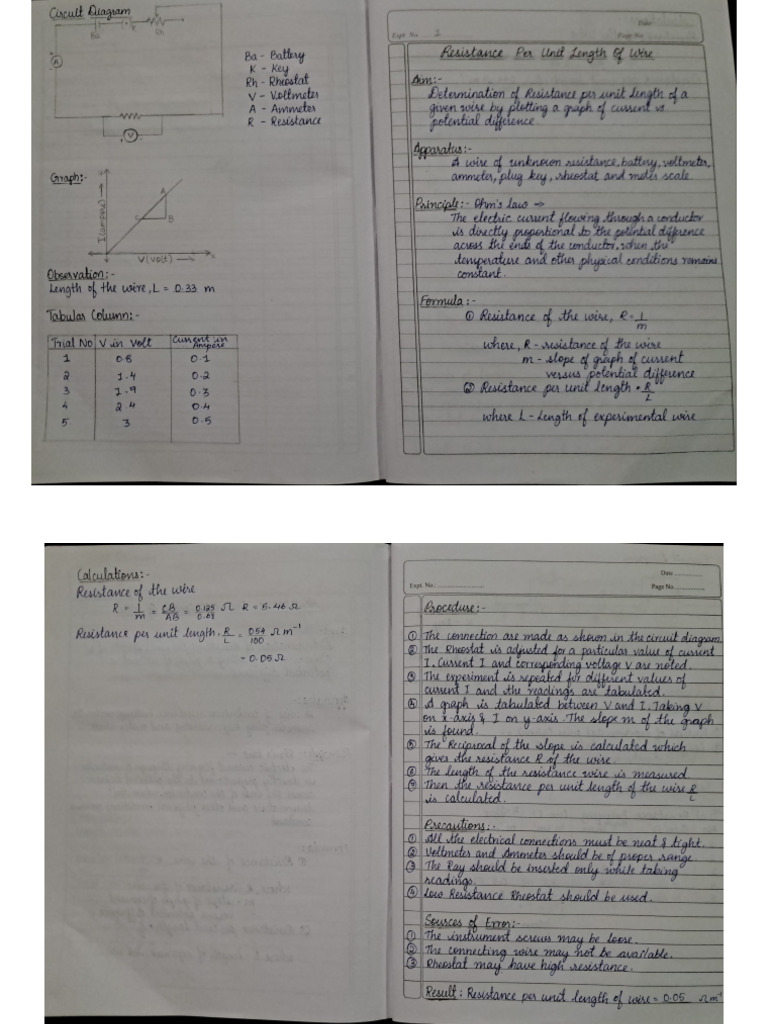 Circuit Diagram
Ba
K
Rh
A
V
Ba - Battery
K - Key
Rh - Rheostat
V - Voltmeter
A - Ammeter
R - Resistance
Graph:-
Y
I (ampere) →
A
C
B
V(volt) →
x
Observation:-
Length of the wire, L = 0.33 m
Tabular Column:-
Trial No V in Volt Current in Ampere
1 0.8 0.1
2 1.4 0.2
3 1.9 0.3
4 2.4 0.4
5 3 0.5
Date
Expt. No. 1 Page No.
Resistance Per Unit Length Of Wire
Aim:-
Determination of Resistance per unit length of a
given wire by plotting a graph of current vs
potential difference.
Apparatus:-
A wire of unknown resistance, battery, voltmeter,
ammeter, plug key, rheostat and meter scale
Principle:- Ohm's law →
The electric current flowing through a conductor
is directly proportional to the potential difference
across the ends of the conductor, when the
temperature and other physical conditions remains
constant.
Formula:-
① Resistance of the wire, R = 1/m
where, R - resistance of the wire
m - slope of graph of current
versus potential difference
② Resistance per unit length = R/L
where L - Length of experimental wire
Calculations:-
Resistance of the wire
R = 1/m = CB/AB = 0.125/0.03 Ω R = 5.46 Ω
Resistance per unit length, R/L = 054/100 Ω m⁻¹
= 0.05 Ω
Date
Expt. No.: Page No.
Procedure:-
① The connection are made as shown in the circuit diagram
② The Rheostat is adjusted for a particular value of current
I. Current I and corresponding voltage V are noted.
③ The experiment is repeated for different values of
current I and the readings are tabulated.
④ A graph is tabulated between V and I. Taking V
on x-axis & I on y-axis. The slope m of the graph
is found.
⑤ The Reciprocal of the slope is calculated which
gives the resistance R of the wire.
⑥ The length of the resistance wire is measured.
⑦ Then the resistance per unit length of the wire R/L
is calculated.
Precautions:-
① All the electrical connections must be neat & tight.
② Voltmeter and Ammeter should be of proper range.
③ The Ray should be inserted only while taking
readings.
④ Low Resistance Rheostat should be used.
Sources of Error:-
① The instrument screws may be loose.
② The connecting wire may not be available.
③ Rheostat may have high resistance.
Result: Resistance per unit length of wire = 0.05 Ωm⁻¹